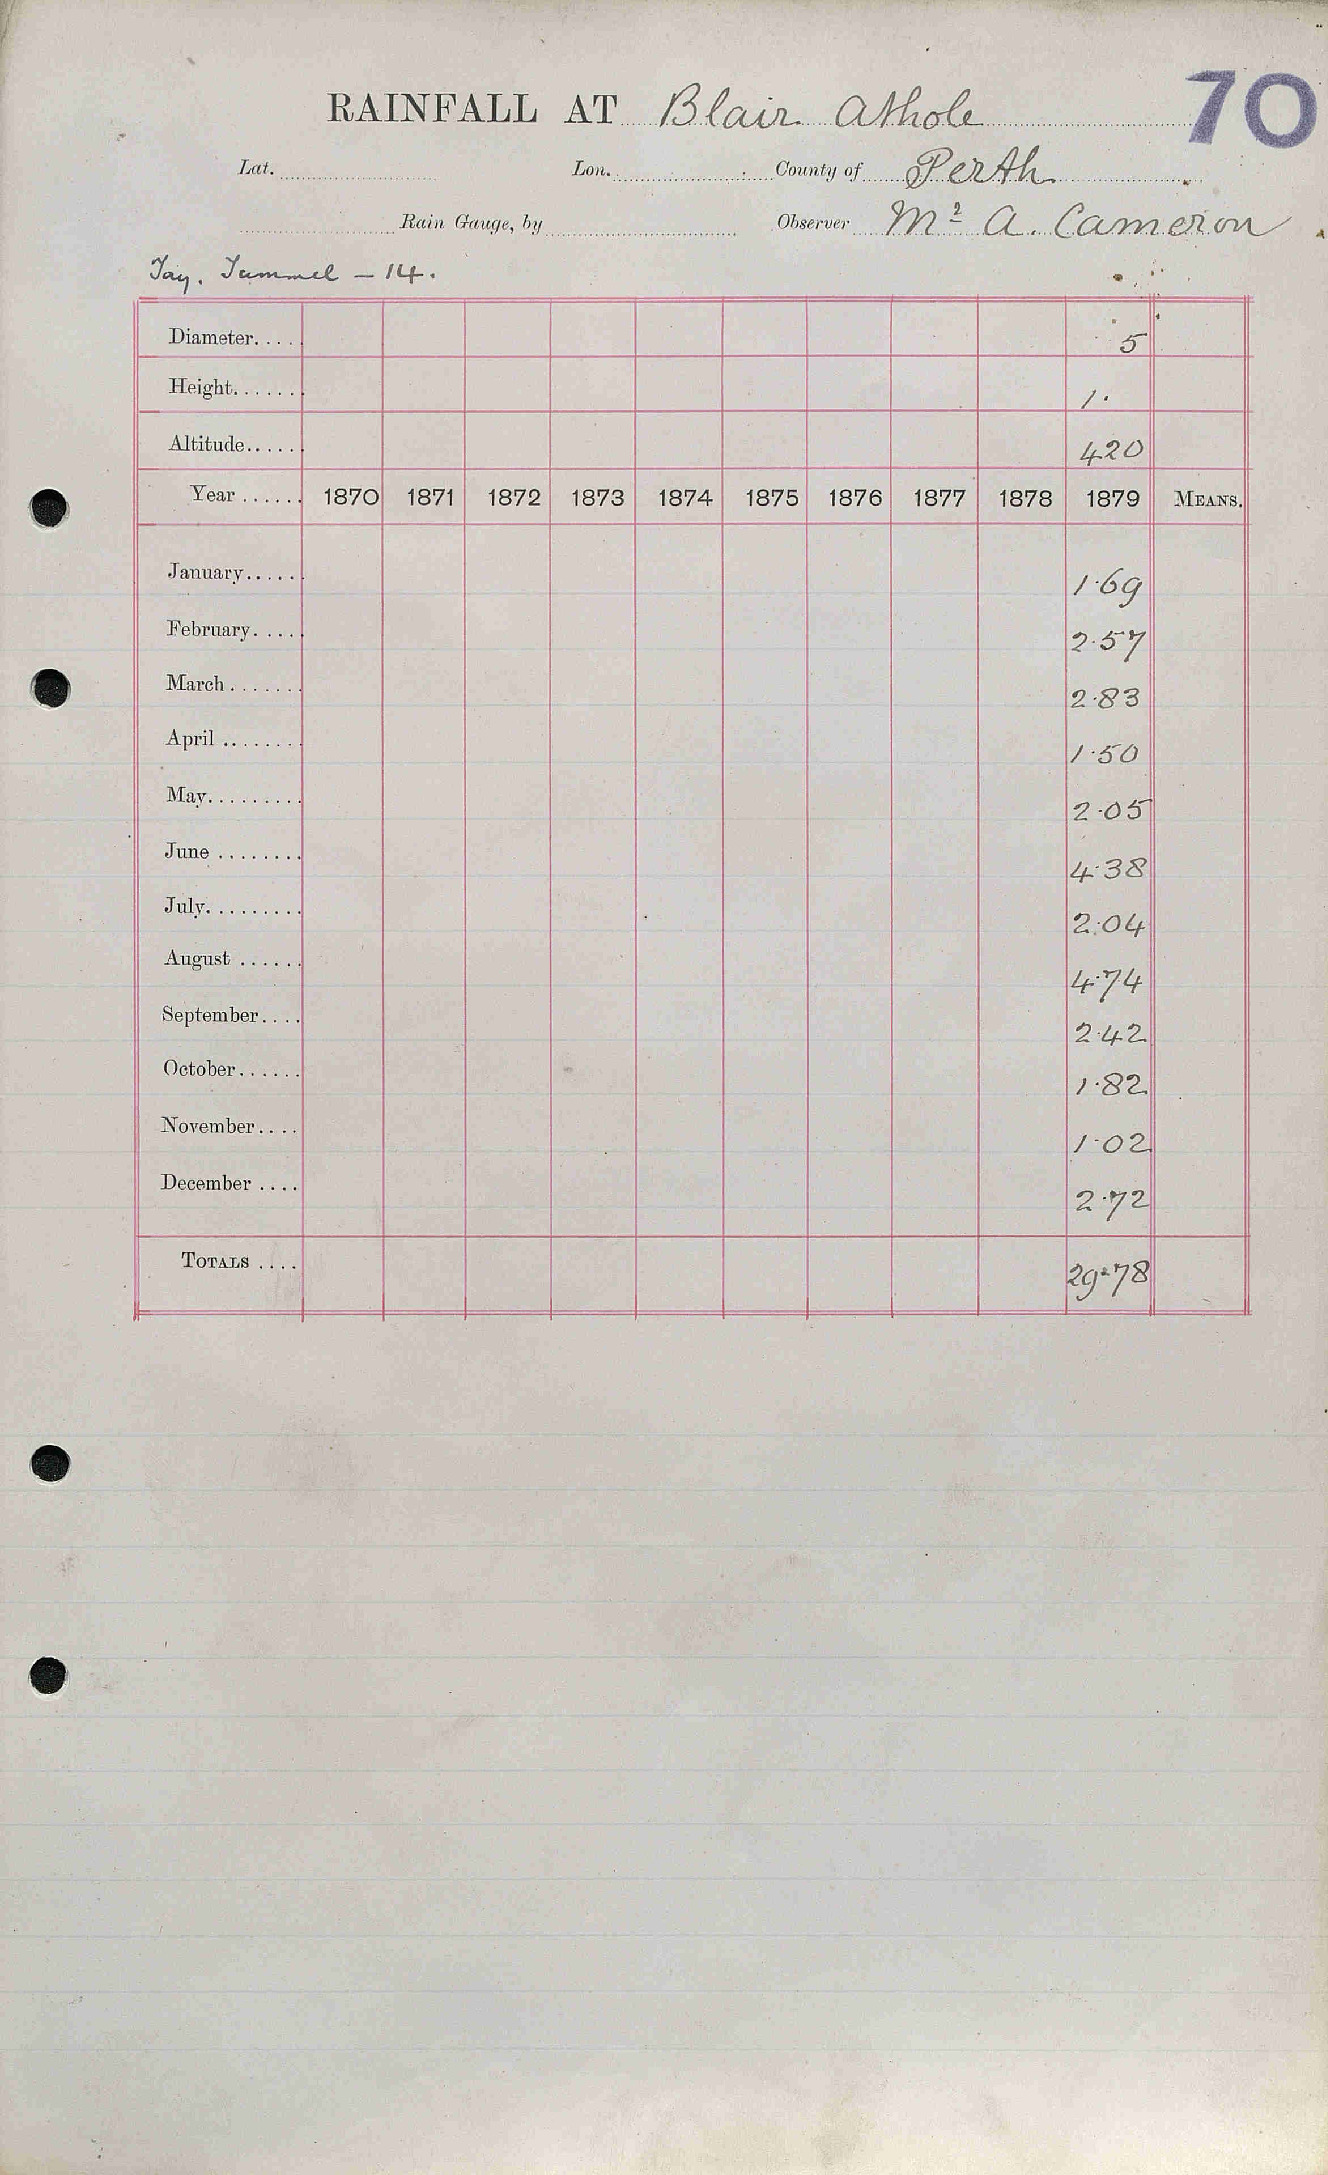 70
RAINFALL AT Blair Athole
Lat. Lon. County of Perth
Rain Gauge, by Observer Mr A. Cameron
Tay. Tummel — 14.
Diameter..... 5
Height....... 1·
Altitude..... 420
Year ...... 1870 1871 1872 1873 1874 1875 1876 1877 1878 1879 MEANS.
January..... 1·69
February..... 2·57
March....... 2·83
April ........ 1·50
May......... 2·05
June ........ 4·38
July......... 2·04
August ...... 4·74
September.... 2·42
October...... 1·82
November.... 1·02
December .... 2·72
TOTALS .... 29·78